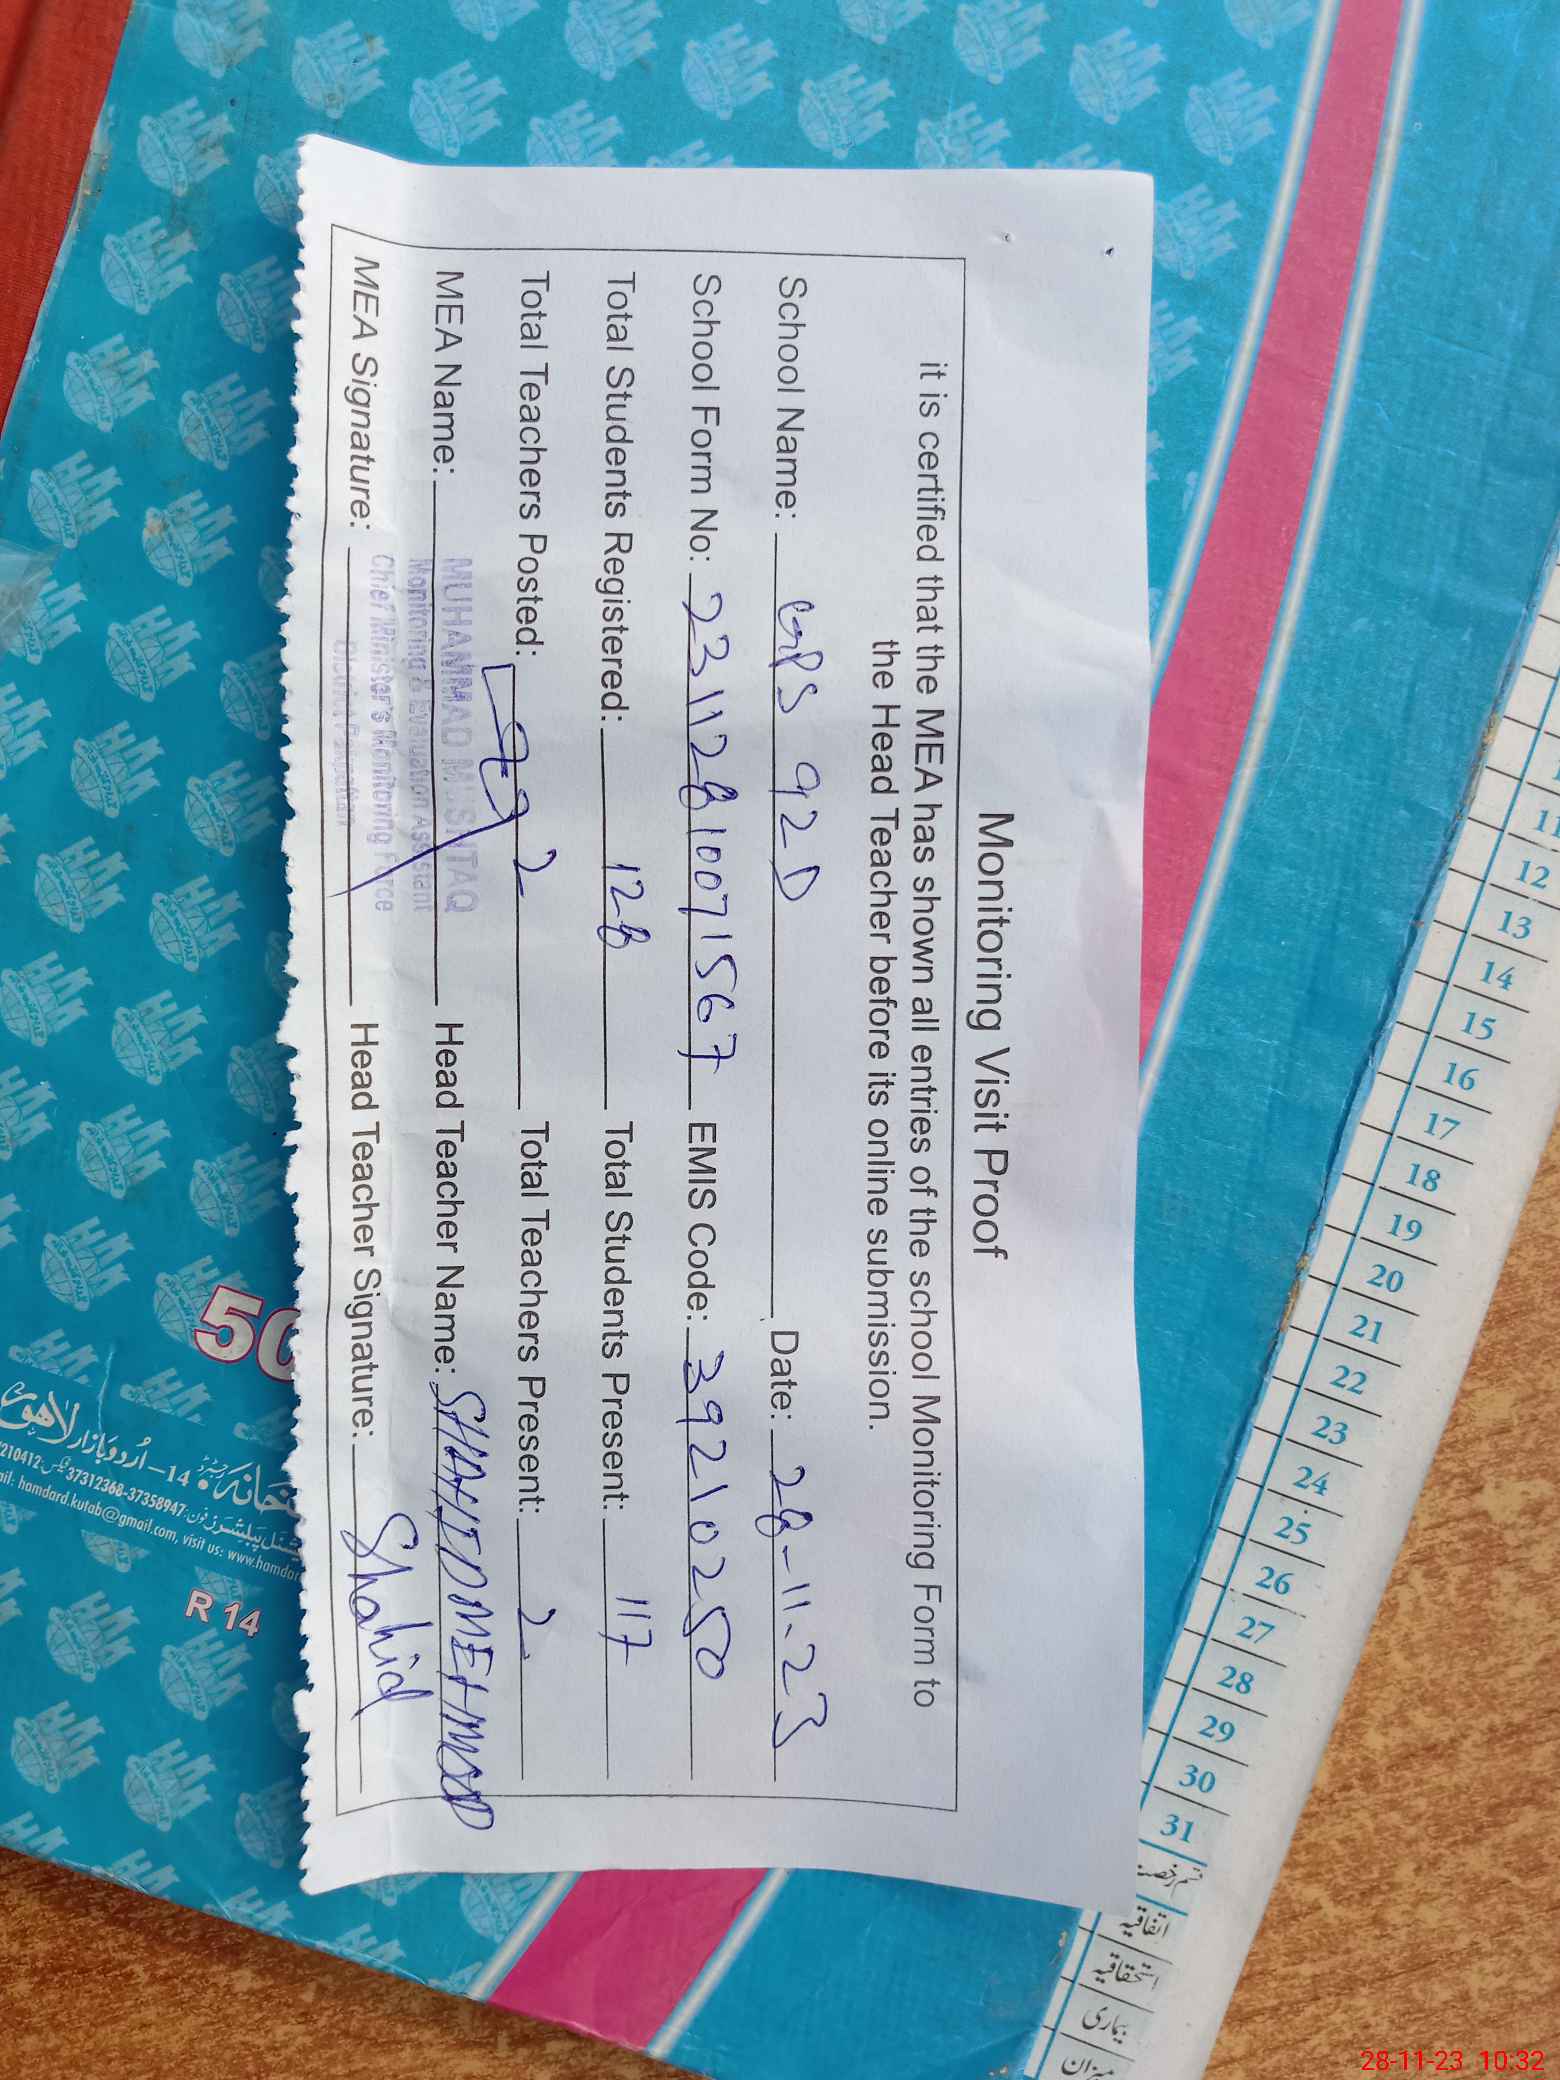 Monitoring Visit Proof
it is certified that the MEA has shown all entries of the school Monitoring Form to
the Head Teacher before its online submission.
School Name: GPS 92D Date: 28-11-23
School Form No: 23112810071567 EMIS Code: 39210250
Total Students Registered: 128 Total Students Present: 117
Total Teachers Posted: 2 Total Teachers Present: 2
MEA Name: Head Teacher Name: SHAHID MEHMOOD
MUHAMMAD MUSHTAQ
Monitoring & Evaluation Assistant
Chief Minister's Monitoring Force
District Pakpattan
MEA Signature: Head Teacher Signature: Shahid
11
12
13
14
15
16
17
18
19
20
21
22
23
24
25
26
27
28
29
30
31
اتفاقیہ
استحقاقیہ
بیماری
میزان
50
14- اُردو بازار لاہور
210412 فیکس: 37312368-37358947 فون:
ail: hamdard.kutab@gmail.com, visit us: www.hamdar
R 14
28-11-23 10:32